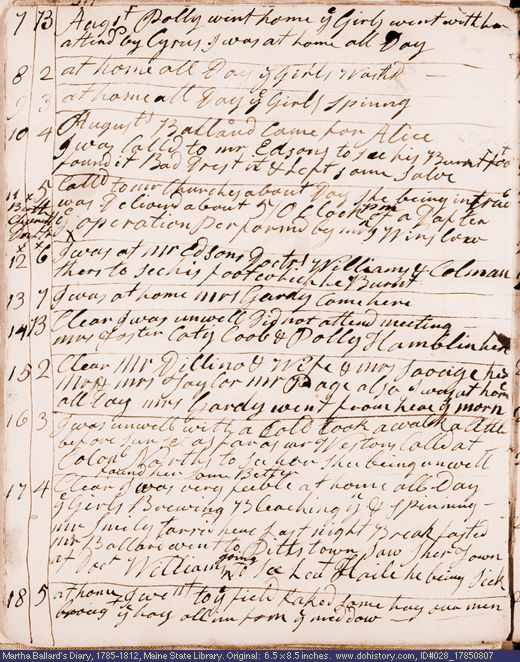 7 B August Polly went home ye Girls went with her
attend by Cyrus I was at home all Day
8 2 at home all Day ye Girls washt
9 3 at home all Day ye Girls spinng
10 4 August Ballard Came for Alice
I was Calld to mr Edsons to see his Burnt foot
found it Bad Drest it & Left some salve
11 5 Calld to mr Churches about Day she being in travil
was Deliverd about 5 O Clock pm of a Dafter
ye operation performd by mrs Winslow
Birth
X X X
12 6 I was at mr Edsons Doctrs Williams & Colman
there to see his foot which he Burnt
13 7 I was at home mrs Gardy Came here
14 B Clear I was unwell Did not attend meeting
mrs foster Caty Coob & Polly Hamblin here
15 2 Clear Mr Dilling & Wife & mrs Savage here
Mr & mrs Taylor mr Page also I was at home
all Day mrs Gardy went from here ye morn
16 3 I was unwell with a Cold took a walk a Little
before sun set as far as mr Westons Calld at
Colonl Norths to see her shee being unwell
found her some Better
17 4 Clear I was very feable at home all Day
ye Girls Brewing Bleaching & Spinning
mr Smily tarried here last night Breakfasted
mr Ballard went to Pittstown saw Shertown
at Doct Williams going to see Levt Haile he being Sick
18 5 at home I went to ye field Raked some hay our men
ye hay all in from ye medow